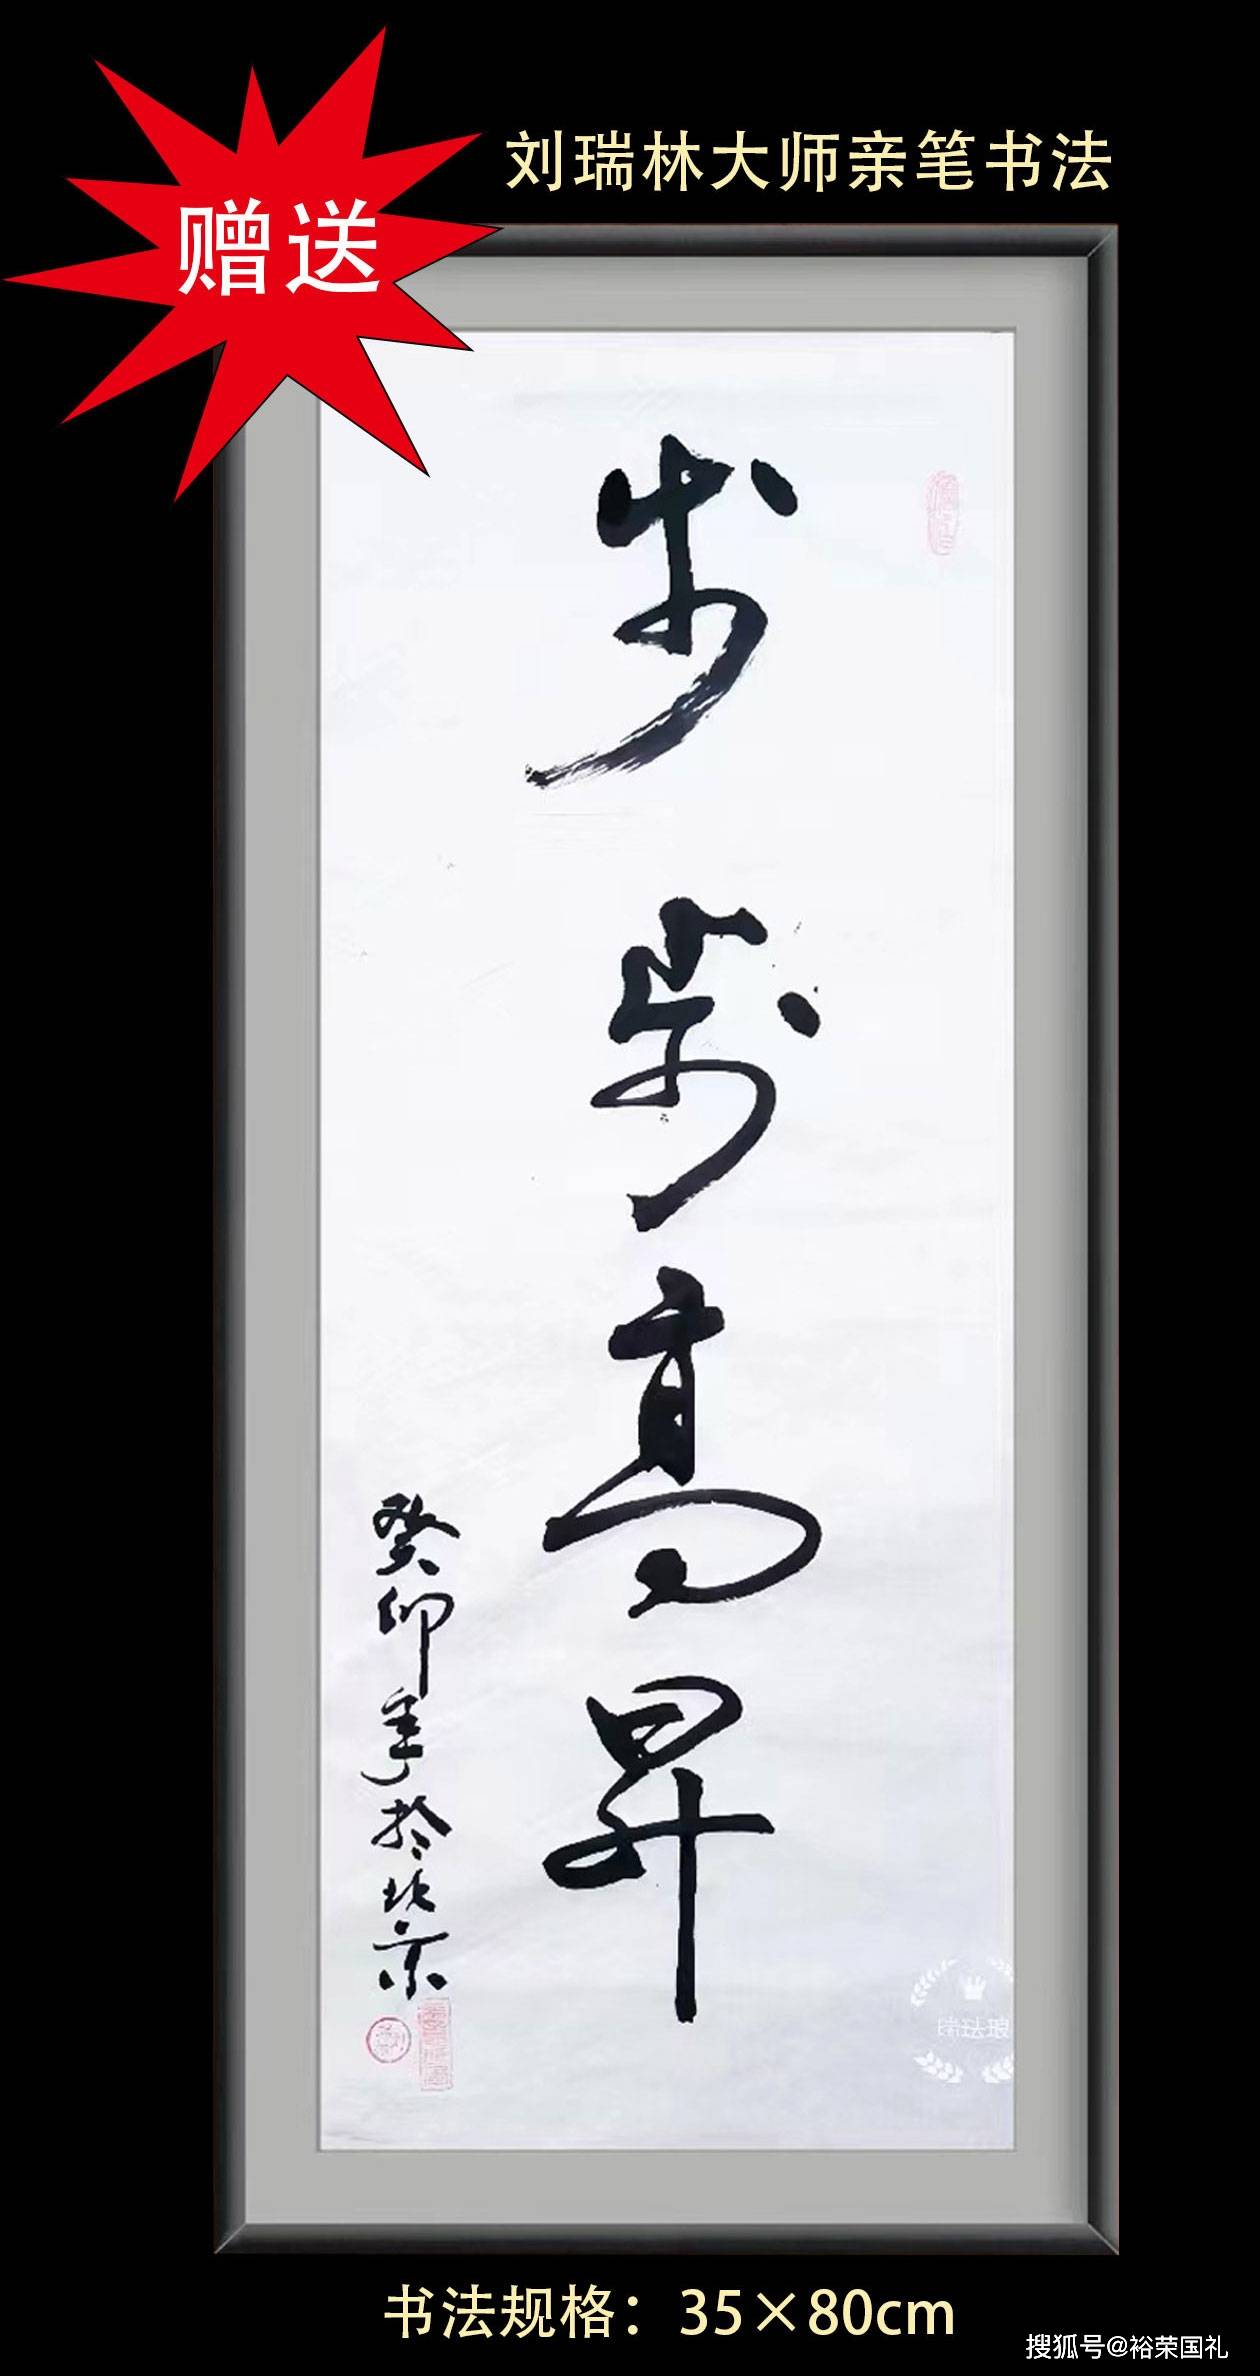 赠送
刘瑞林大师亲笔书法
步步高昇
癸卯年於北京
书法规格：35×80cm
搜狐号@裕荣国礼